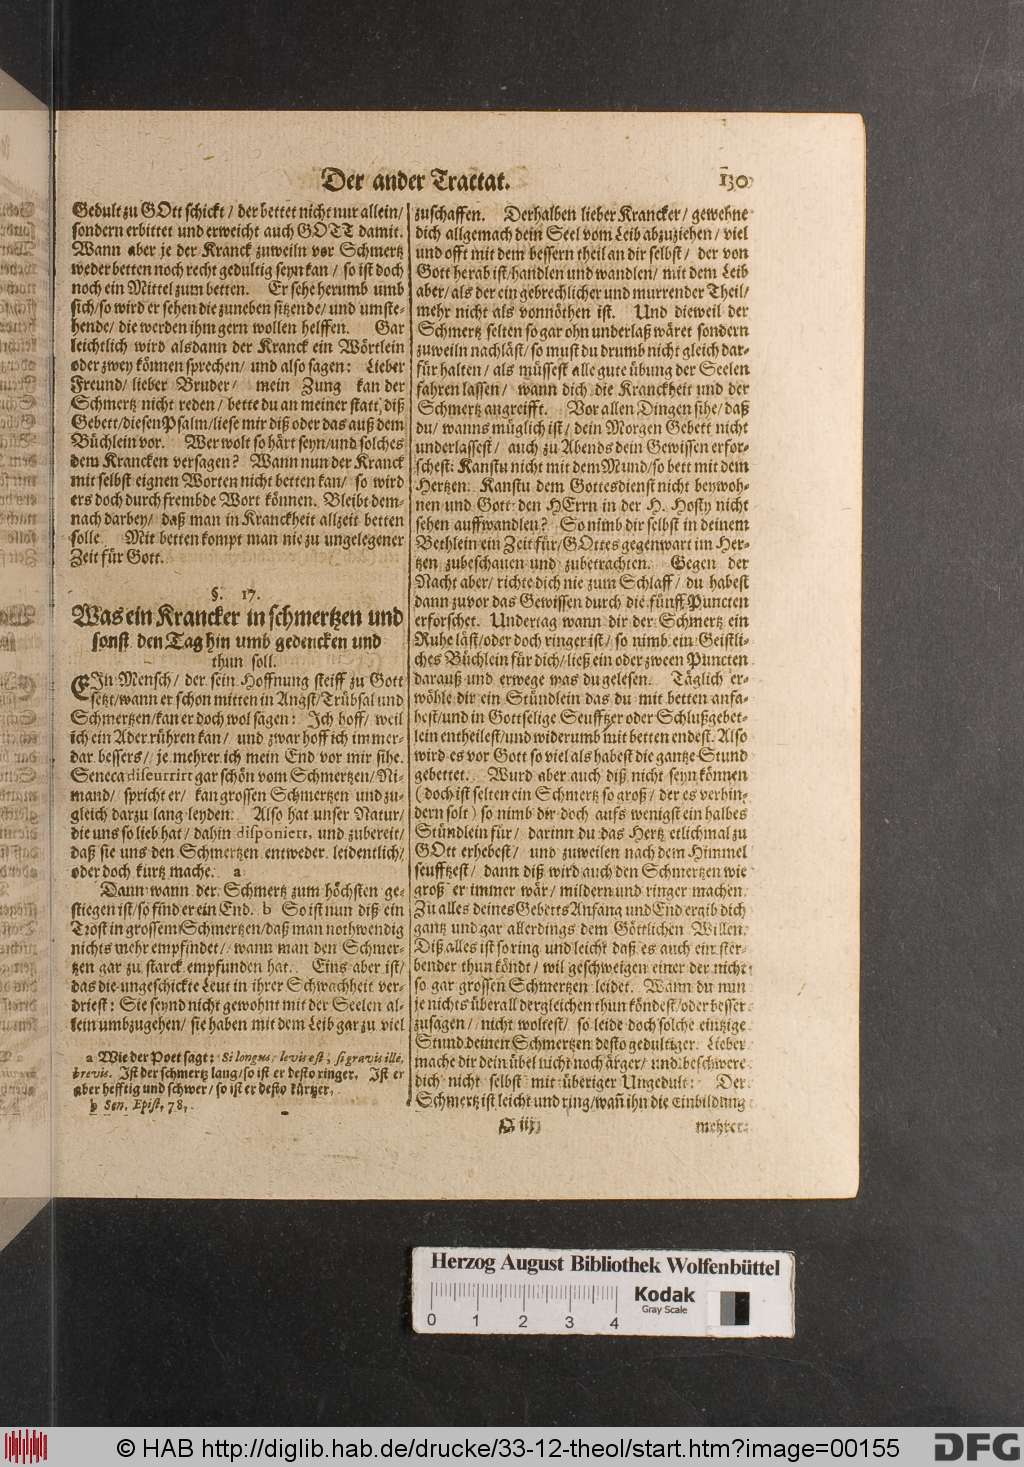 Der ander Tractat.
130
Gedult zu GOtt schickt / der bettet nicht nur allein /
sondern erbittet und erweicht auch GOTT damit.
Wann aber je der Kranck zuweiln vor Schmertz
weder betten noch recht gedultig seyn kan / so ist doch
noch ein Mittel zum betten. Er sehe herumb umb
sich / so wird er sehen die zuneben sitzende / und umste-
hende / die werden ihm gern wollen helffen. Gar
leichtlich wird alsdann der Kranck ein Wörtlein
oder zwey können sprechen / und also sagen: Lieber
Freund / lieber Bruder / mein Zung kan der
Schmertz nicht reden / bette du an meiner statt diß
Gebett / diesen Psalm / liese mir diß oder das auß dem
Büchlein vor. Wer wolt so härt seyn / und solches
dem Krancken versagen? Wann nun der Kranck
mit selbst eignen Worten nicht betten kan / so wird
ers doch durch frembde Wort können. Bleibt dem-
nach darbey / daß man in Kranckheit allzeit betten
solle. Mit betten kompt man nie zu ungelegener
Zeit für Gott.
§. 17.
Was ein Krancker in schmertzen und
sonst den Tag hin umb gedencken und
thun soll.
EIn Mensch / der sein Hoffnung steiff zu Gott
setzt / wann er schon mitten in Angst / Trübsal und
Schmertzen / kan er doch wol sagen: Ich hoff / weil
ich ein Ader rühren kan / und zwar hoff ich immer-
dar bessers / je mehrer ich mein End vor mir sihe.
Seneca discurrirt gar schön vom Schmertzen / Ni-
mand / spricht er / kan grossen Schmertzen und zu-
gleich darzu lang leyden. Also hat unser Natur /
die uns so lieb hat / dahin disponiert, und zubereit /
daß sie uns den Schmertzen entweder leidentlich /
oder doch kurtz mache. a
Dann wann der Schmertz zum höchsten ge-
stiegen ist / so find er ein End. b So ist nun diß ein
Trost in grossem Schmertzen / daß man nothwendig
nichts mehr empfindet / wann man den Schmer-
tzen gar zu starck empfunden hat. Eins aber ist /
das die ungeschickte Leut in ihrer Schwachheit ver-
driest: Sie seynd nicht gewohnt mit der Seelen al-
lein umbzugehen / sie haben mit dem Leib gar zu viel
a Wie der Poet sagt: Si longus, levis est; si gravis ille,
brevis. Ist der schmertz lang / so ist er desto ringer, Ist er
aber hefftig und schwer / so ist er desto kürtzer.
b Sen. Epist. 78.
zuschaffen. Derhalben lieber Krancker / gewehne
dich allgemach dein Seel vom Leib abzuziehen / viel
und offt mit dem bessern theil an dir selbst / der von
Gott herab ist / handlen und wandlen / mit dem Leib
aber / als der ein gebrechlicher und murrender Theil /
mehr nicht als vonnöthen ist. Und dieweil der
Schmertz selten so gar ohn underlaß wäret sondern
zuweiln nachläst / so must du drumb nicht gleich dar-
für halten / als müssest alle gute übung der Seelen
fahren lassen / wann dich die Kranckheit und der
Schmertz angreifft. Vor allen Dingen sihe / daß
du / wanns müglich ist / dein Morgen Gebett nicht
underlassest / auch zu Abends dein Gewissen erfor-
schest: Kanstu nicht mit dem Mund / so bett mit dem
Hertzen. Kanstu dem Gottesdienst nicht beywoh-
nen und Gott den HErrn in der H. Hosty nicht
sehen auffwandlen? So nimb dir selbst in deinem
Bethlein ein Zeit für / GOttes gegenwart im Her-
tzen zubeschauen und zubetrachten. Gegen der
Nacht aber / richte dich nie zum Schlaff / du habest
dann zuvor das Gewissen durch die fünff Puncten
erforschet. Undertag wann dir der Schmertz ein
Ruhe läst / oder doch ringer ist / so nimb ein Geistli-
ches Büchlein für dich / ließ ein oder zween Puncten
darauß und erwege was du gelesen. Täglich er-
wöhle dir ein Stündlein das du mit betten anfa-
hest / und in Gottselige Seufftzer oder Schlußgebet-
lein entheilest / und widerumb mit betten endest. Also
wird es vor Gott so viel als habest die gantze Stund
gebettet. Wurd aber auch diß nicht seyn können
(doch ist selten ein Schmertz so groß / der es verhin-
dern solt) so nimb dir doch aufs wenigst ein halbes
Stündlein für / darinn du das Hertz etlichmal zu
GOtt erhebest / und zuweilen nach dem Himmel
seufftzest / dann diß wird auch den Schmertzen wie
groß er immer wär / mildern und ringer machen.
Zu alles deines Gebetts Anfang und End ergib dich
gantz und gar allerdings dem Göttlichen Willen.
Diß alles ist so ring und leicht daß es auch ein ster-
bender thun köndt / wil geschweigen einer der nicht
so gar grossen Schmertzen leidet. Wann du nun
je nichts überall dergleichen thun köndest / oder besser
zusagen / nicht woltest / so leide doch solche eintzige
Stund deinen Schmertzen desto gedultiger. Lieber
mache dir dein übel nicht noch ärger / und beschwere
dich nicht selbst mit überiger Ungedult: Der
Schmertz ist leicht und ring / wañ ihn die Einbildung
iij
mehrer
Herzog August Bibliothek Wolfenbüttel
Kodak
Gray Scale
0 1 2 3 4
© HAB http://diglib.hab.de/drucke/33-12-theol/start.htm?image=00155
DFG